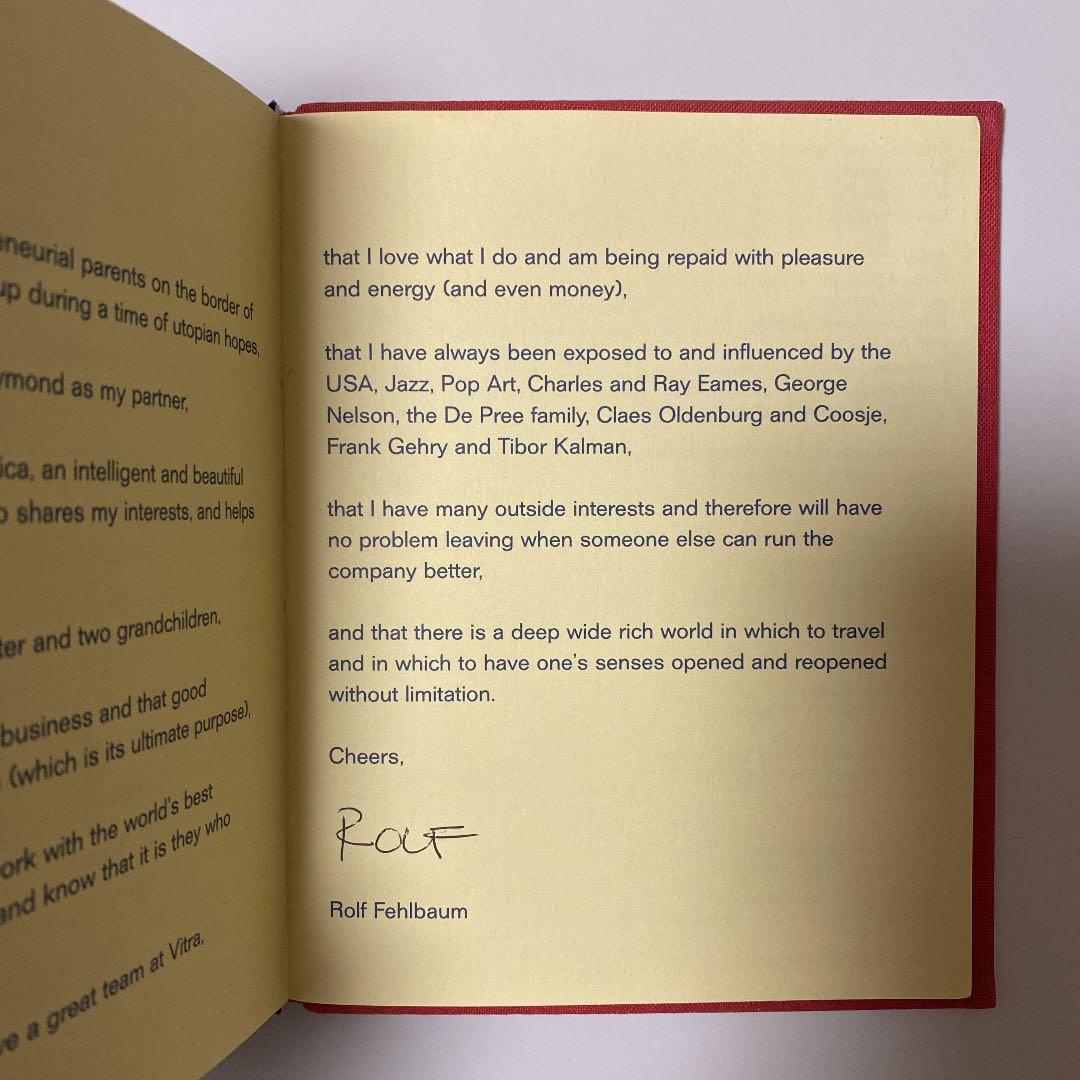 eneurial parents on the border of
up during a time of utopian hopes,
ymond as my partner,
ica, an intelligent and beautiful
o shares my interests, and helps
ter and two grandchildren,
business and that good
(which is its ultimate purpose),
ork with the world's best
and know that it is they who
ve a great team at Vitra,
that I love what I do and am being repaid with pleasure
and energy (and even money),
that I have always been exposed to and influenced by the
USA, Jazz, Pop Art, Charles and Ray Eames, George
Nelson, the De Pree family, Claes Oldenburg and Coosje,
Frank Gehry and Tibor Kalman,
that I have many outside interests and therefore will have
no problem leaving when someone else can run the
company better,
and that there is a deep wide rich world in which to travel
and in which to have one's senses opened and reopened
without limitation.
Cheers,
ROLF
Rolf Fehlbaum